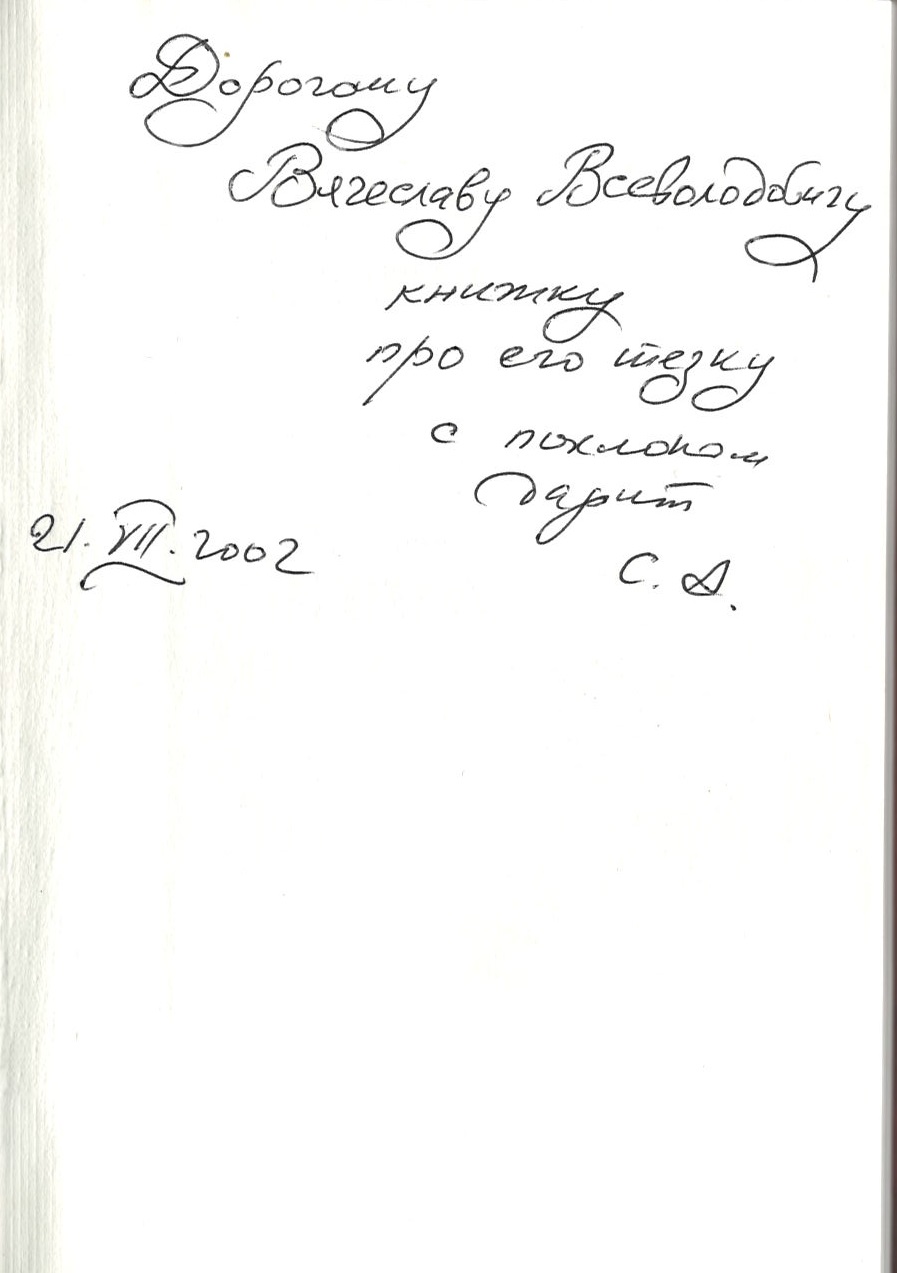 Дорогому
Вячеславу Всеволодовичу
книжку
про его тезку
с поклоном
дарит
С. А.
21. VIII. 2002